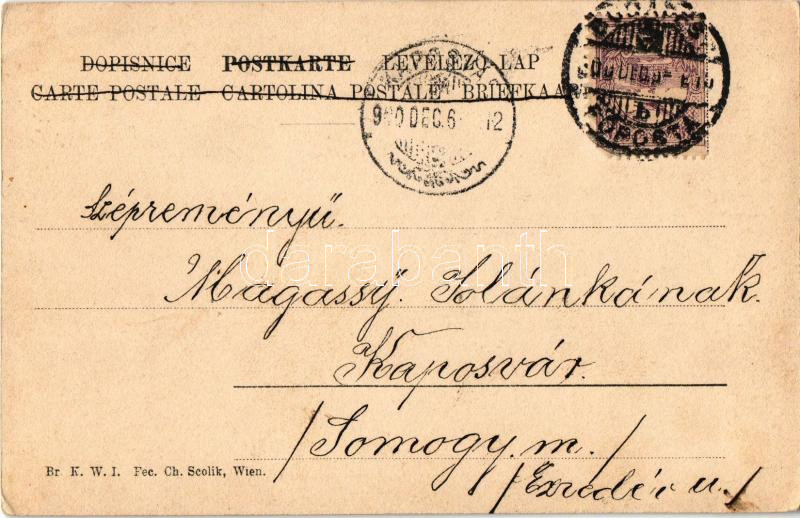 DOPISNICE POSTKARTE LEVELEZŐ-LAP
CARTE POSTALE CARTOLINA POSTALE BRIEFKAART
KAPOSVÁR
900 DEC. 6 12
BUDAPEST
900 DEC 5
FŐPOSTA
Szépreményű.
Magassÿ. Jolánkának.
Kaposvár.
/Somogy.m./
/Ezredév u./
Br. K. W. I. Fec. Ch. Scolik, Wien.
darabanth